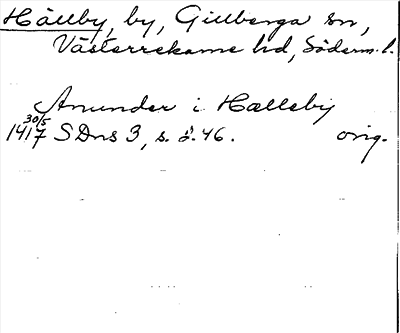 Hällby, by, Gillberga sn,
Västerrekarne hd, Söderm. l.
Anunder i Hælleby
1417 30/5 SDns 3, s. 246. orig.